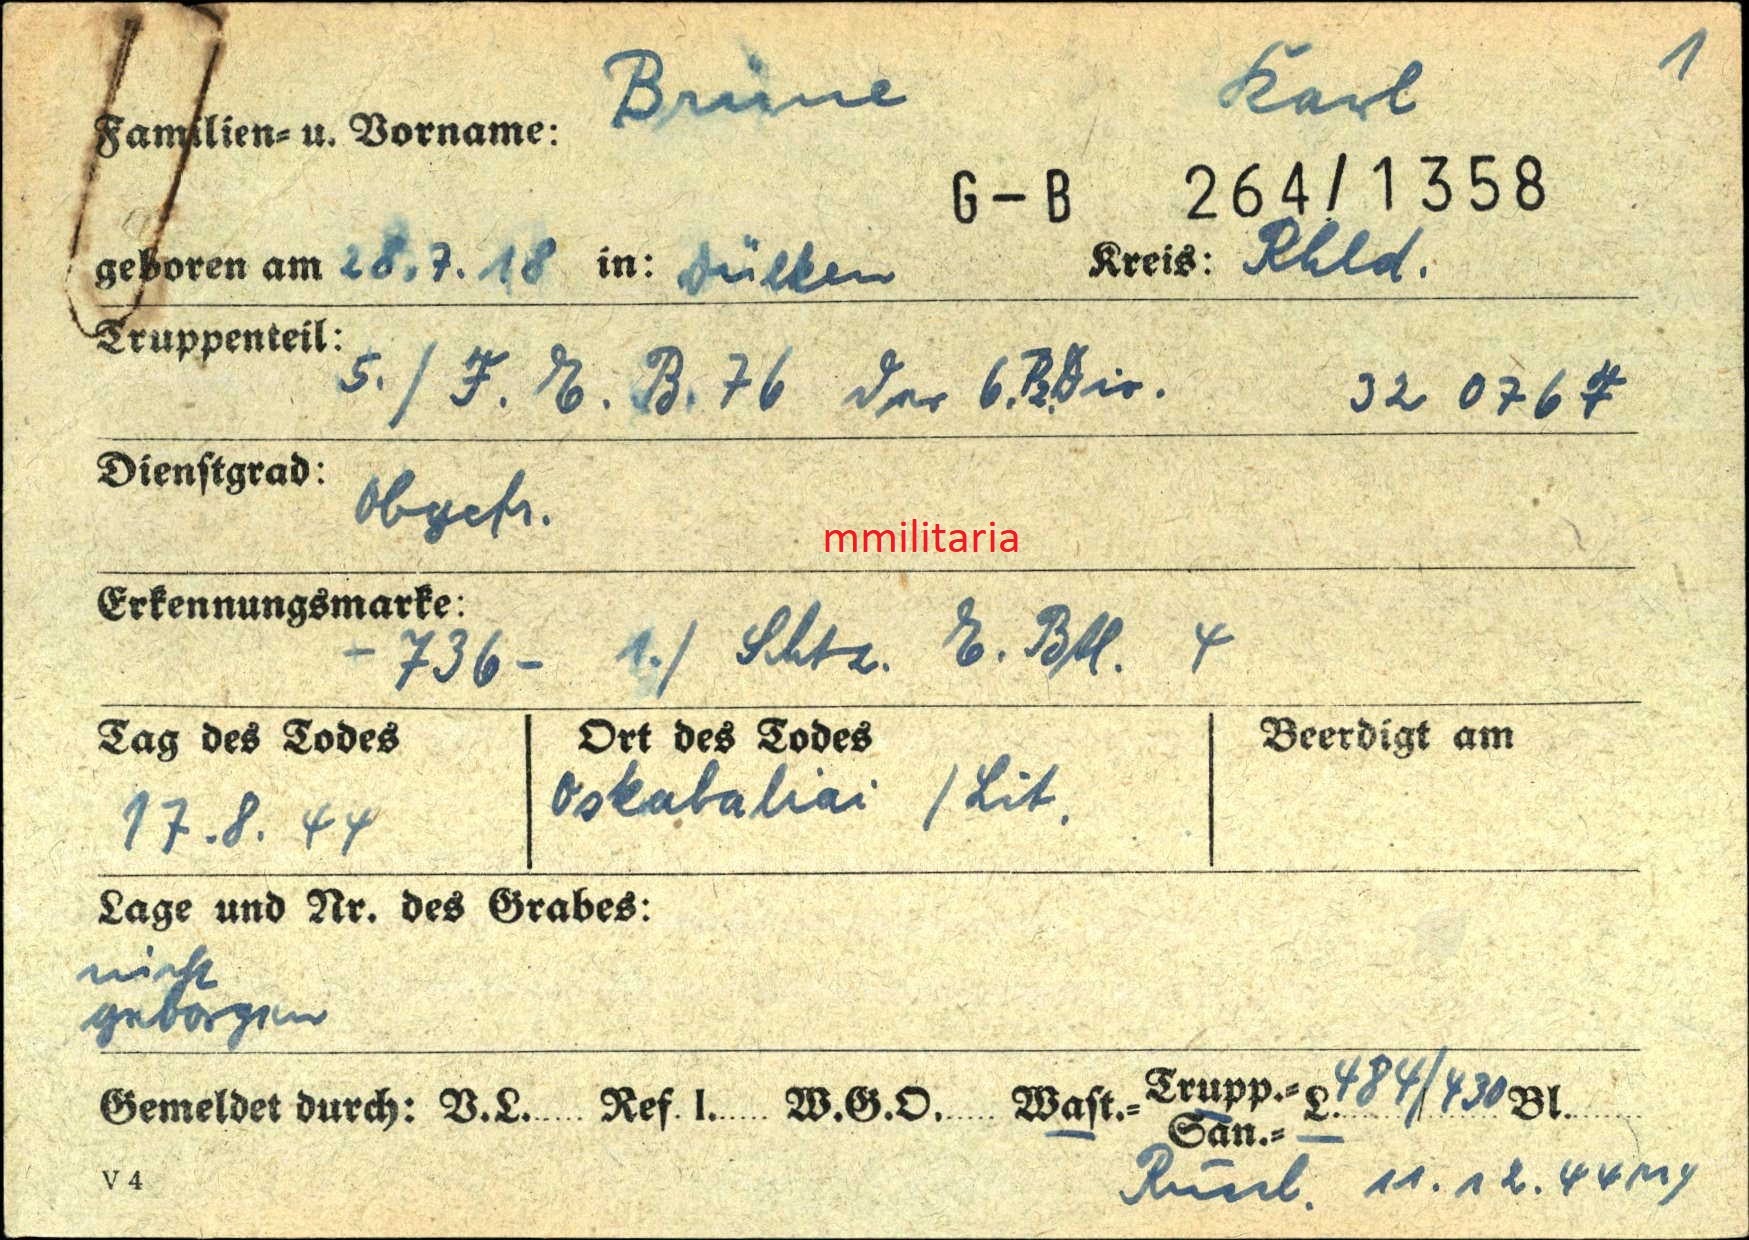 Brüne Karl 1
Familien- u. Vorname:
G-B 264/1358
geboren am 28.7.18 in: Dülken Kreis: Rhld.
Truppenteil:
5./ F. E. B. 76 der 6.Pz.Div. 32 076 F
Dienstgrad:
Obgefr.
mmilitaria
Erkennungsmarke:
-736- 1./ Schtz. E. Btl. 4
Tag des Todes Ort des Todes Beerdigt am
17.8.44 Oskabaliai /Lit.
Lage und Nr. des Grabes:
nicht
geborgen
Gemeldet durch: V.L..... Ref. I..... W.G.O..... Wast.- Trupp.- L. 484/430 Bl.......
San.-
Russl. 11.12.44
V 4